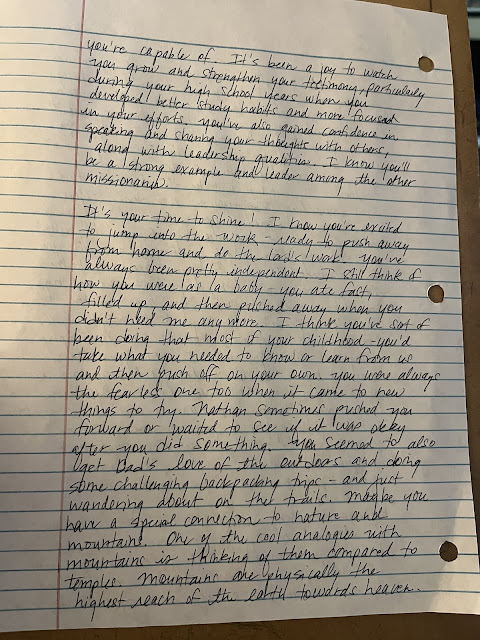 you're capable of. It's been a joy to watch
you grow and strengthen your testimony, particularly
during your high school years when you
developed better study habits and more focused
in your efforts. You've also gained confidence in
speaking and sharing your thoughts with others,
along with leadership qualities. I know you'll
be a strong example and leader among the other
missionaries.
It's your time to shine! I know you're excited
to jump into the work - ready to push away
from home and do the Lord's work. You've
always been pretty independent. I still think of
how you were as a baby - you ate fast,
filled up, and then pushed away when you
didn't need me any more. I think you've sort of
been doing that most of your childhood - you'd
take what you needed to know or learn from us
and then push off on your own. You were always
the fearless one too when it came to new
things to try. Nathan sometimes pushed you
forward or waited to see if it was okay
after you did something. You seemed to also
get Dad's love of the outdoors and doing
some challenging backpacking trips - and just
wandering about on the trails. Maybe you
have a special connection to nature and
mountains. One of the cool analogies with
mountains is thinking of them compared to
temples. Mountains are physically the
highest reach of the earth towards heaven.